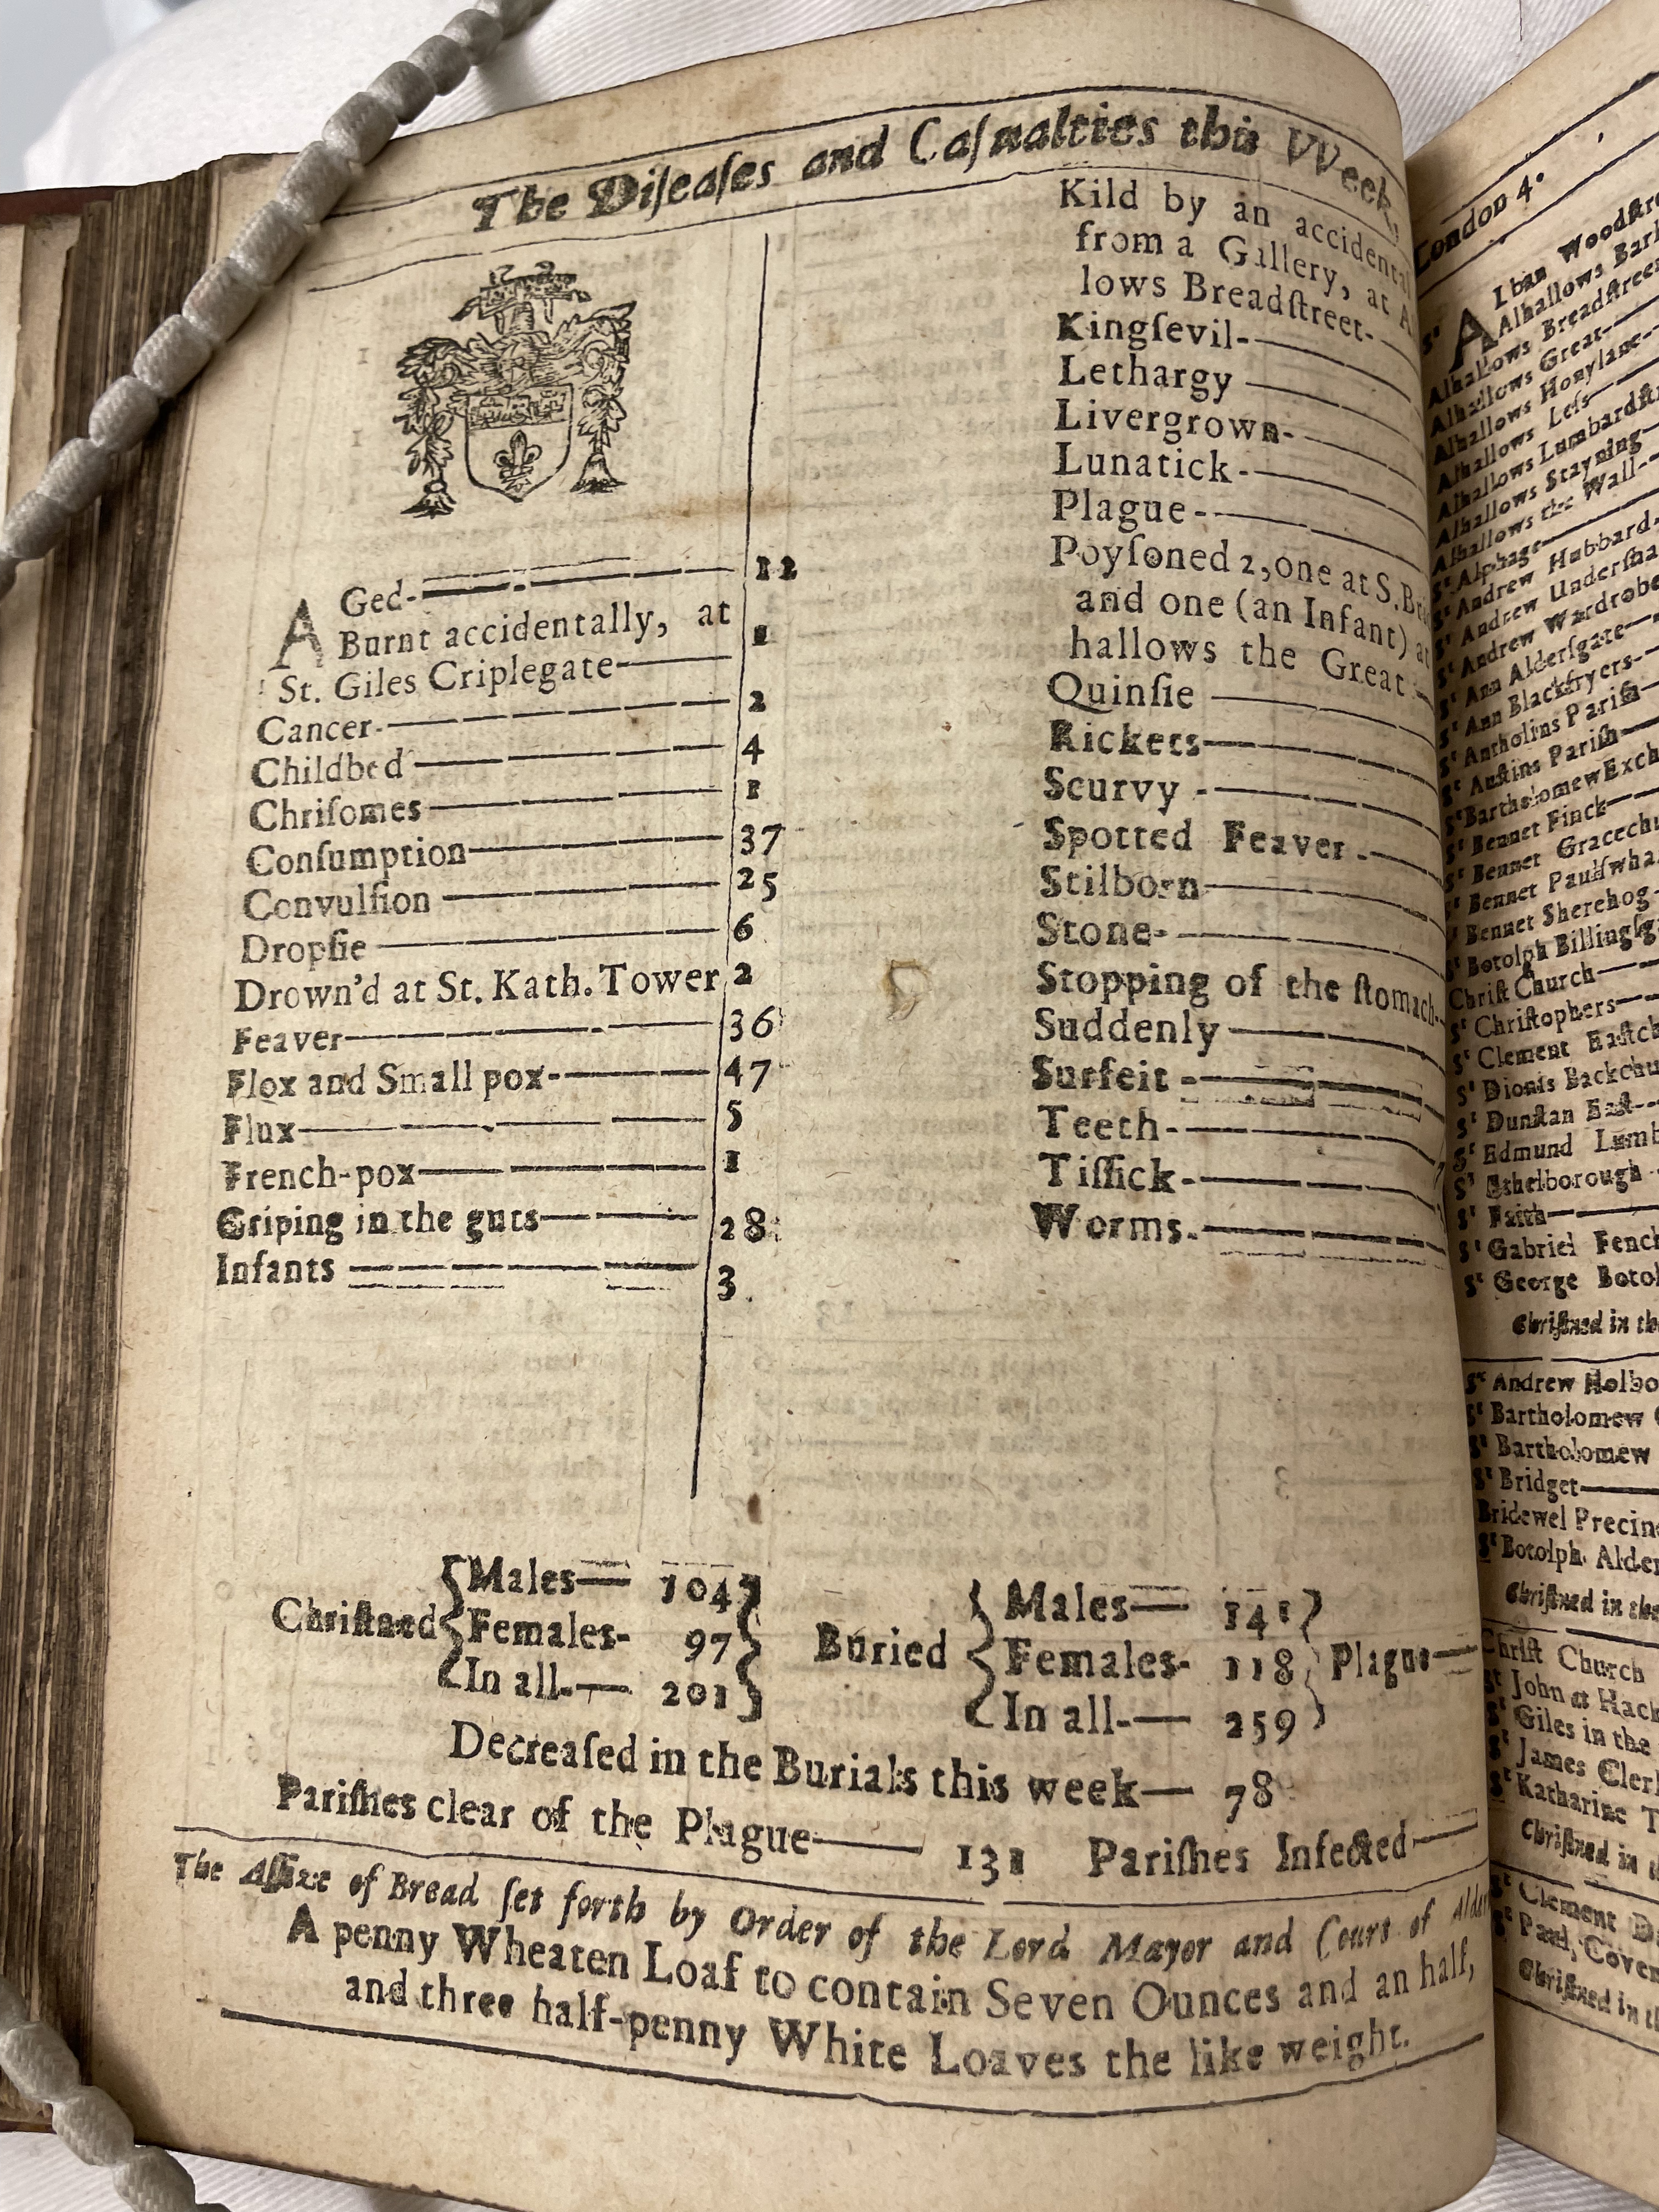 The Diſeaſes and Caſualties this VVeek.
AGed 12
Burnt accidentally, at
St. Giles Criplegate 1
Cancer 2
Childbed 4
Chriſomes 1
Conſumption 37
Convulſion 25
Dropſie 6
Drown'd at St. Kath. Tower 2
Feaver 36
Flox and Small pox 47
Flux 5
French-pox 1
Griping in the guts 28
Infants 3
Kild by an accidental
from a Gallery, at
lows Breadſtreet
Kingſevil
Lethargy
Livergrown
Lunatick
Plague
Poyſoned 2, one at S.
and one (an Infant) at
hallows the Great
Quinſie
Rickets
Scurvy
Spotted Feaver
Stilborn
Stone
Stopping of the ſtomach
Suddenly
Surfeit
Teeth
Tiſſick
Worms
Chriſtned
Males— 104
Females- 97
In all— 201
Buried
Males— 141
Females- 118
In all— 259
Plague—
Decreaſed in the Burials this week— 78
Pariſhes clear of the Plague— 131 Pariſhes Infected—
The Aſſize of Bread ſet forth by Order of the Lord Mayor and Court of
A penny Wheaten Loaf to contain Seven Ounces and an half,
and three half-penny White Loaves the like weight.
London 4.
St Alban
Alhallows
Alhallows Breadſtreet
Alhallows Great
Alhallows Honylane
Alhallows Leſs
Alhallows
Alhallows Stayning
Alhallows the Wall
St Alphage
St Andrew Hubbard
St Andrew
St Andrew Wardrobe
St Ann Alderſgate
St Ann Blackfryers
St Antholins Pariſh
St Auſtins Pariſh
St Bartholomew
St Bennet Finck
St Bennet
St Bennet
St Bennet Sherehog
St Botolph
Chriſt Church
St Chriſtophers
St Clement
St Dionis
St Dunſtan Eaſt
St Edmund
St Ethelborough
St Faith
St Gabriel
St George
Chriſtned in
St Andrew
St Bartholomew
St Bartholomew
St Bridget
Bridewel
St Botolph
Chriſtned in
Chriſt Church
St John at
St Giles in the
St James
St Katharine
Chriſtned in
St Clement
St Paul,
Chriſtned in